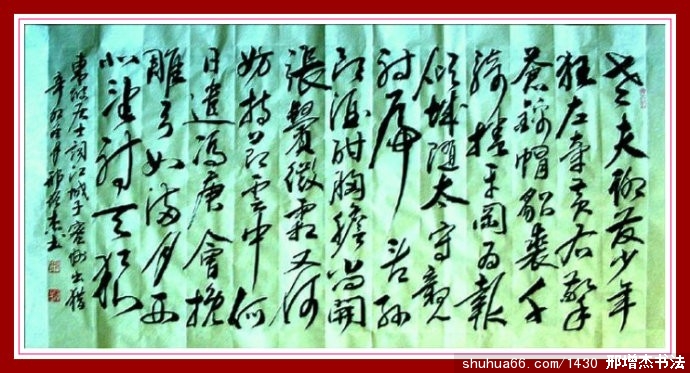 老夫聊发少年
狂左牵黄右擎
苍錦帽貂裘千
骑捲平岡为報
倾城随太守親
射虎看孙
郎酒酣胸膽尚開
張鬢微霜又何
妨持节雲中何
日遣冯唐會挽
雕弓如满月西
北望射天狼
東坡居士詞江城子密州出猎
辛卯年邢增杰书
shuhua66.com/1430 邢增杰书法